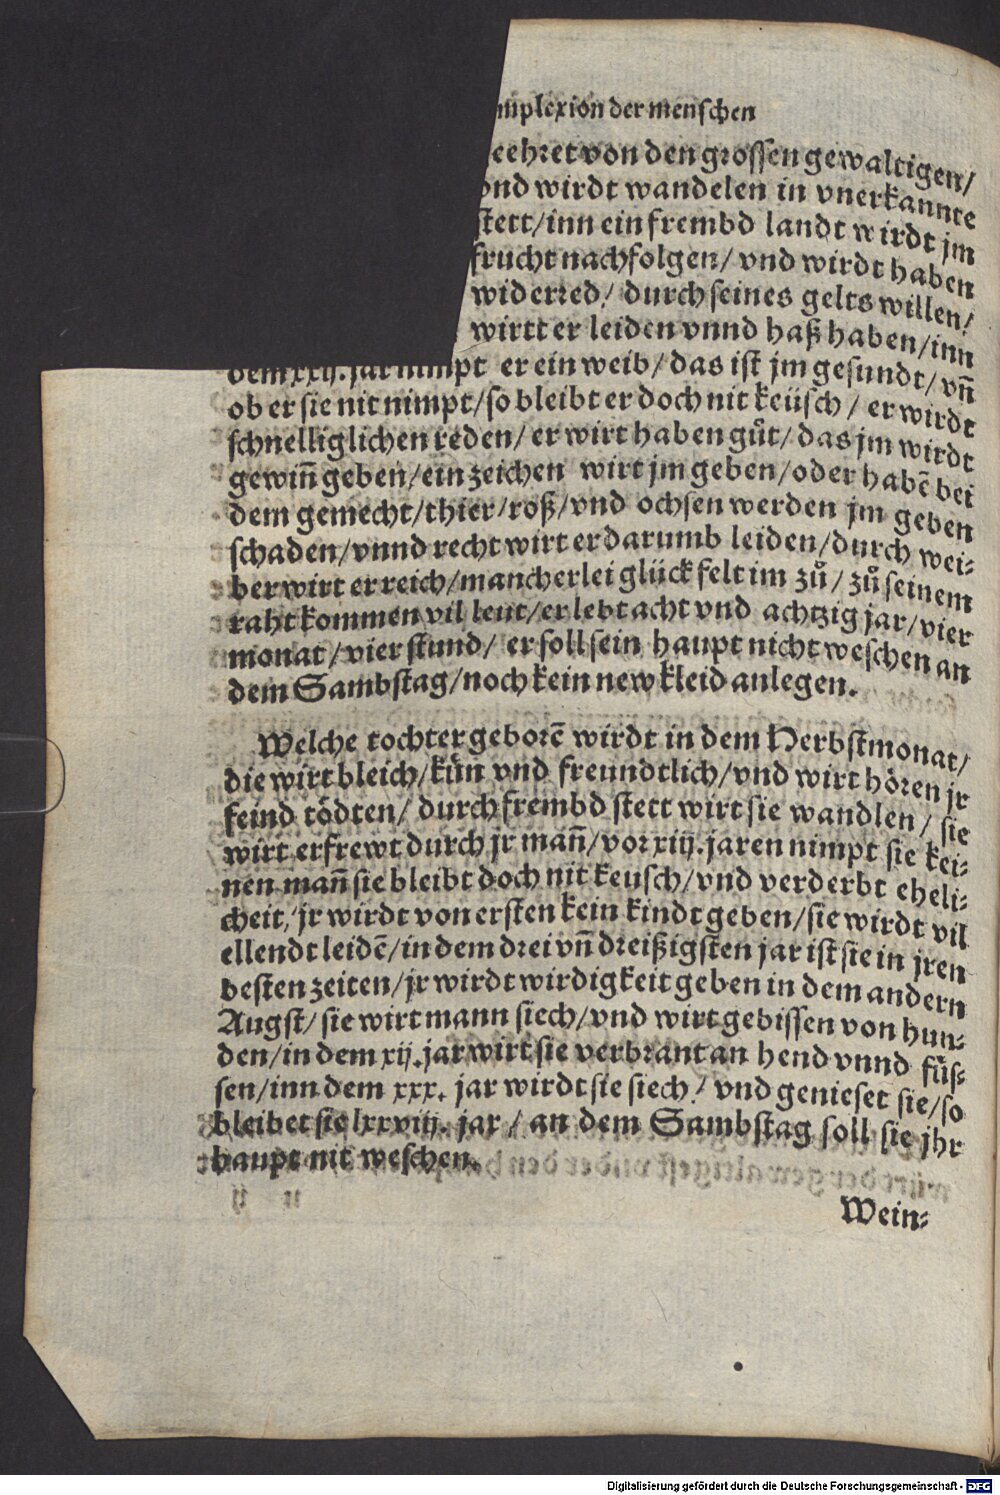 mplexion der menschen
eehret von den grossen gewaltigen/
vnd wirdt wandelen in vnerkannte
stett/inn ein frembd landt wirdt jm
frucht nachfolgen/ vnd wirdt haben
widerred/ durch seines gelts willen/
wirtt er leiden vnnd haß haben/inn
dem xxij. jar nimpt er ein weib/ das ist jm gesundt/ vñ
ob er sie nit nimpt/so bleibt er doch nit keüsch/ er wirdt
schnelliglichen reden/ er wirt haben gůt/ das jm wirdt
gewiñ geben/ein zeichen wirt jm geben/oder habē bei
dem gemecht/thier/roß/vnd ochsen werden jm geben
schaden/vnnd recht wirt er darumb leiden/durch wei-
ber wirt er reich/mancherlei glück felt im zů/ zů seinem
raht kommen vil leut/er lebt acht vnd achtzig jar/vier
monat/vier stund/ er soll sein haupt nicht weschen an
dem Sambstag/noch kein new kleid anlegen.
Welche tochter geborē wirdt in dem Herbstmonat/
die wirt bleich/kün vnd freundtlich/vnd wirt hören jr
feind tödten/ durch frembd stett wirt sie wandlen/ sie
wirt erfrewt durch jr mañ/vor xiij. jaren nimpt sie kei-
nen mañ sie bleibt doch nit keusch/vnd verderbt eheli-
cheit/jr wirdt von ersten kein kindt geben/sie wirdt vil
ellendt leidē/in dem drei vñ dreißigsten jar ist sie in jren
besten zeiten/jr wirdt wirdigkeit geben in dem andern
Augst/ sie wirt mann siech/vnd wirt gebissen von hun-
den/in dem xij. jar wirt sie verbrant an hend vnnd füs-
sen/inn dem xxx. jar wirdt sie siech/ vnd genieset sie/so
bleibet sie lxxviij. jar/ an dem Sambstag soll sie jhr
haupt nit weschen.
Wein-
Digitalisierung gefördert durch die Deutsche Forschungsgemeinschaft - DFG